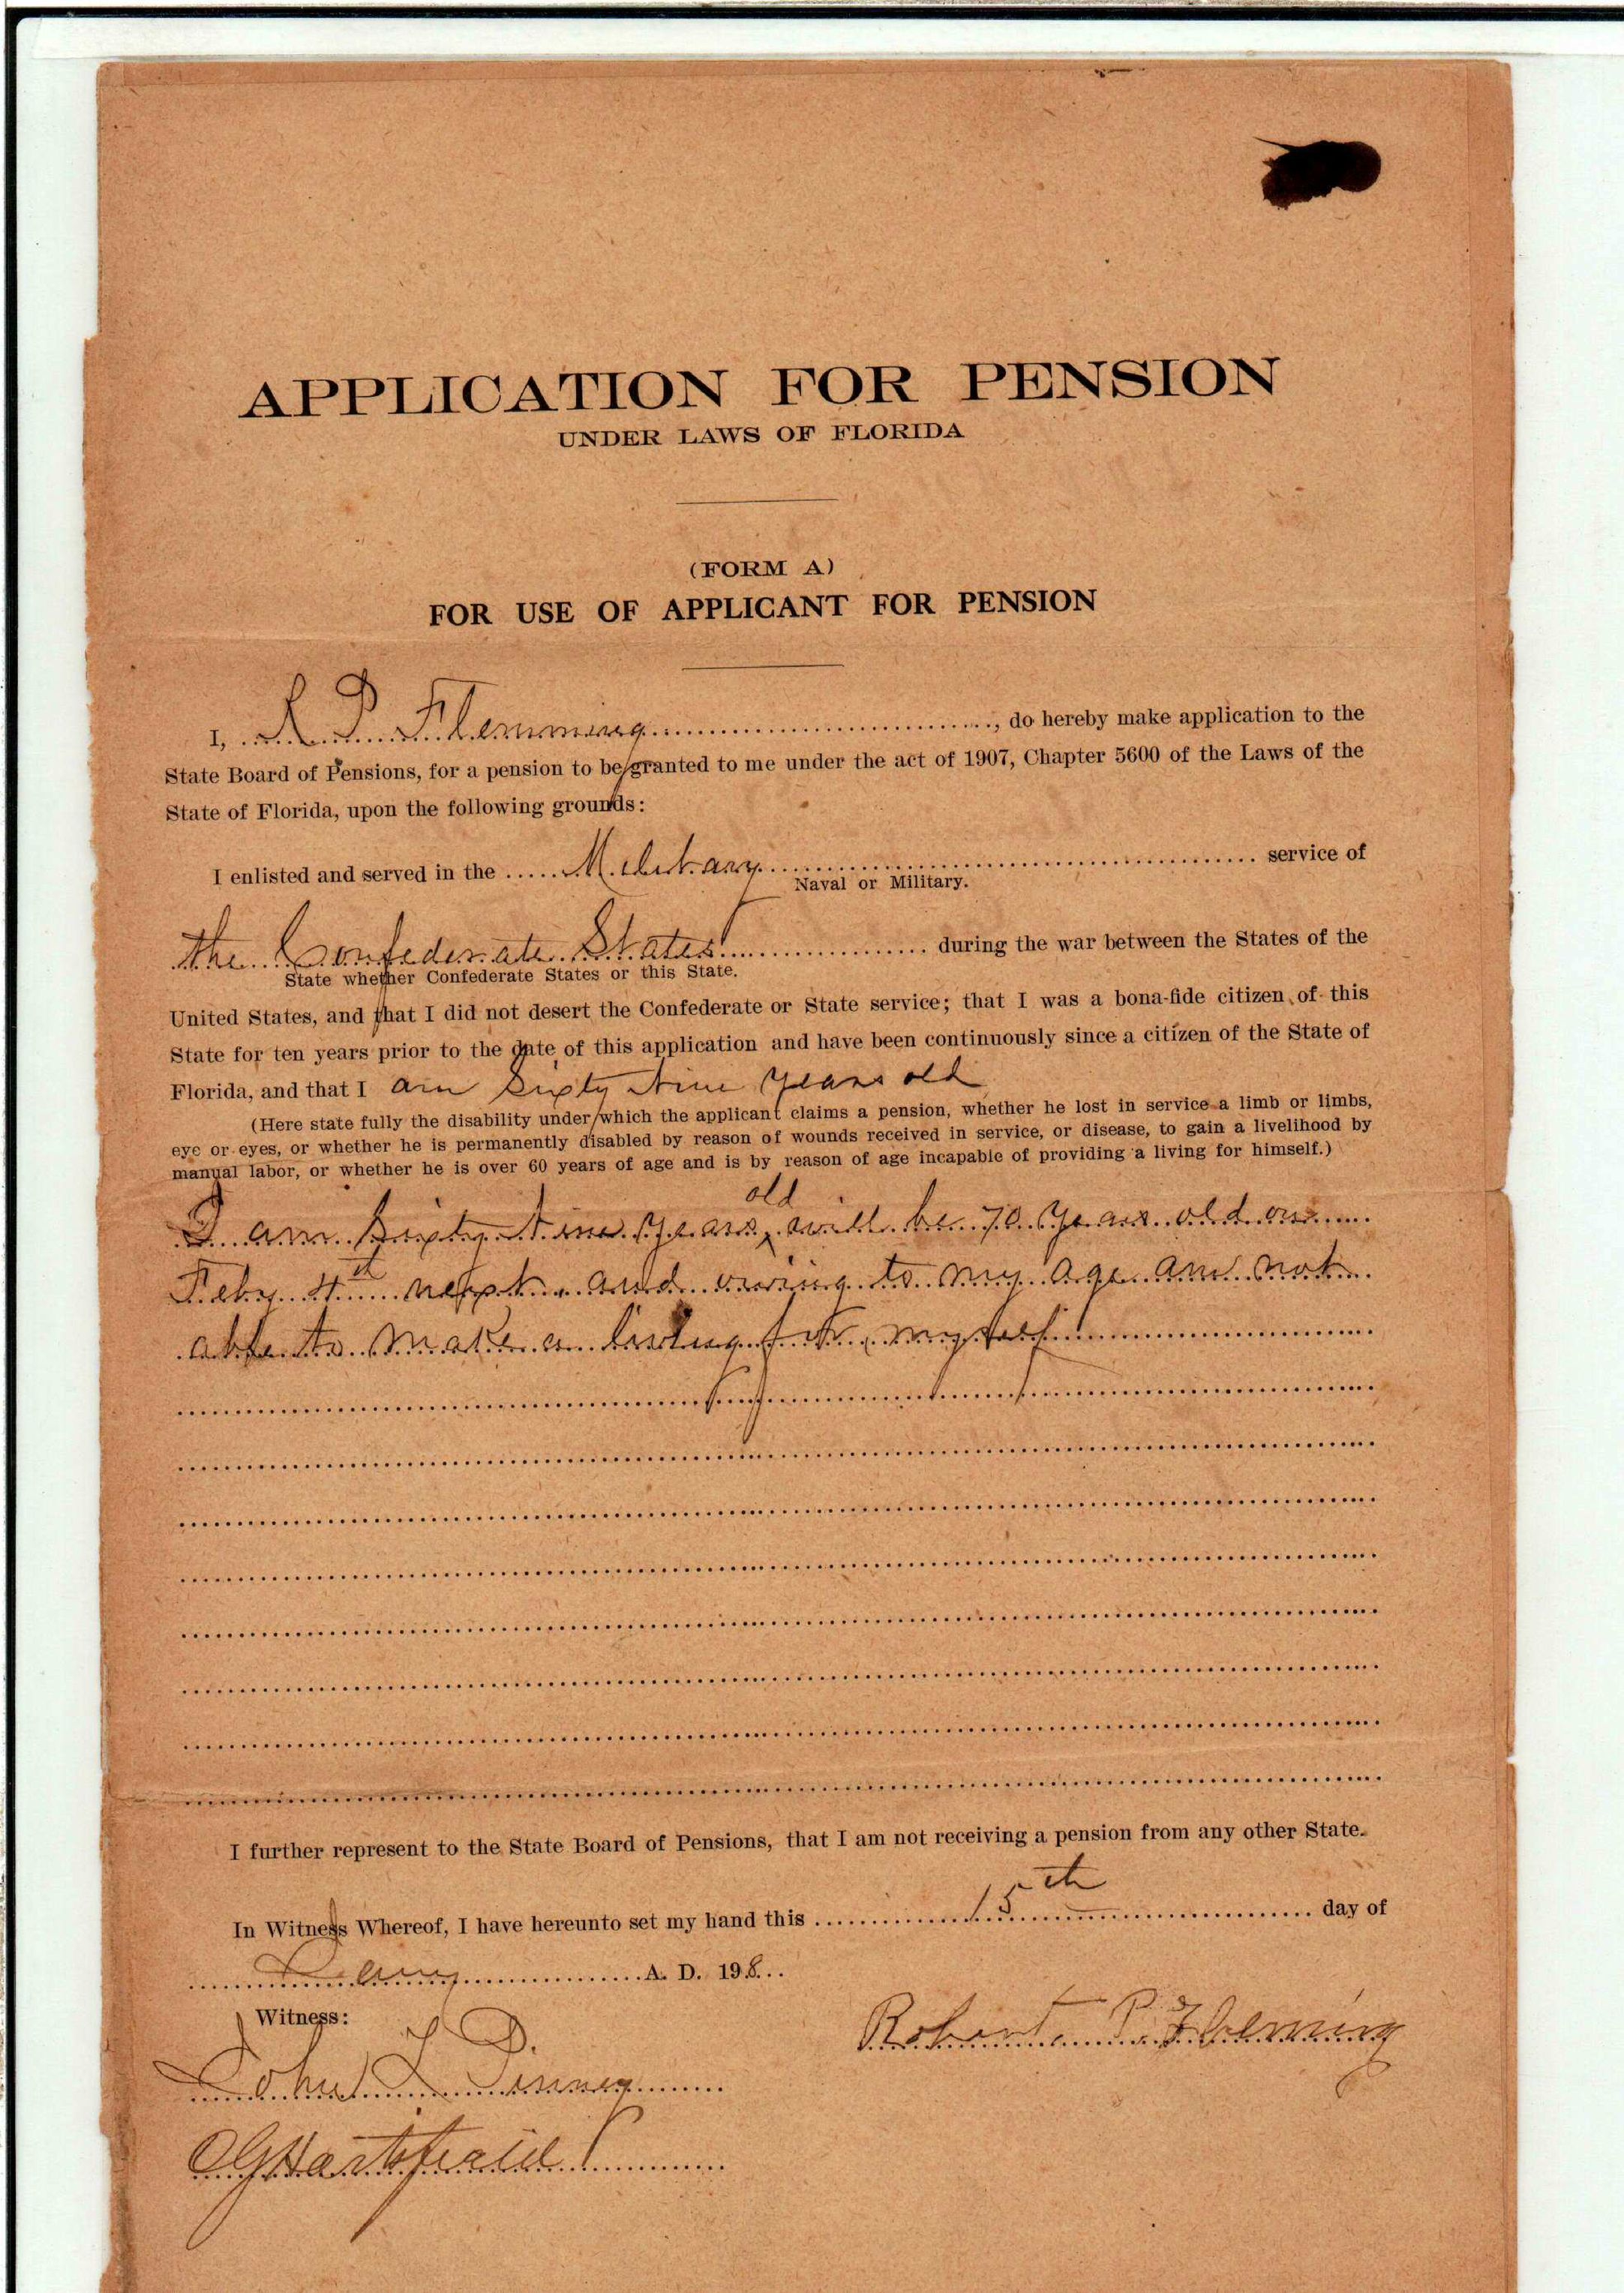 APPLICATION FOR PENSION
UNDER LAWS OF FLORIDA
(FORM A)
FOR USE OF APPLICANT FOR PENSION
I, R P Flemming, do hereby make application to the
State Board of Pensions, for a pension to be granted to me under the act of 1907, Chapter 5600 of the Laws of the
State of Florida, upon the following grounds:
I enlisted and served in the Military service of
Naval or Military.
the Confederate States during the war between the States of the
State whether Confederate States or this State.
United States, and that I did not desert the Confederate or State service; that I was a bona-fide citizen of this
State for ten years prior to the date of this application and have been continuously since a citizen of the State of
Florida, and that I am Sixty Nine years old
(Here state fully the disability under which the applicant claims a pension, whether he lost in service a limb or limbs,
eye or eyes, or whether he is permanently disabled by reason of wounds received in service, or disease, to gain a livelihood by
manual labor, or whether he is over 60 years of age and is by reason of age incapable of providing a living for himself.)
I am Sixty Nine years old will be 70 years old on
Feby 4th next and owing to my age am not
able to make a living for myself
I further represent to the State Board of Pensions, that I am not receiving a pension from any other State.
In Witness Whereof, I have hereunto set my hand this 15th day of
A. D. 198
Witness:
Robert P. Fleming
John L